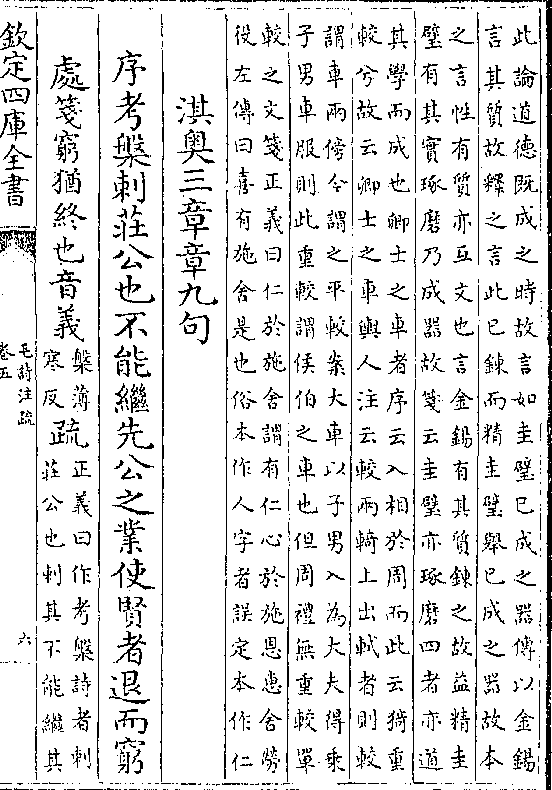 此論道德既成之時故言如圭璧已成之器傳以金錫
言其質故釋之言此已鍊而精圭璧舉已成之器故本
之言性有質亦互文也言金錫有其質鍊之故益精圭
璧有其實琢磨乃成器故箋云圭璧亦琢磨四者亦道
其學而成也卿士之車者序云入相於周而此云猗重
較兮故云卿士之車輿人注云較兩輢上出軾者則較
謂車兩傍今謂之平較案大車以子男入為大夫得乘
子男車服則此重較謂侯伯之車也但周禮無重較單
較之文箋正義曰仁於施舍謂有仁心於施恩惠舍勞
役左傳曰喜有施舍是也俗本作人字者誤定本作仁
淇奥三章章九句
序考槃刺莊公也不能繼先公之業使賢者退而窮
處箋窮猶終也音義
槃薄
寒反
疏
正義曰作考槃詩者刺
莊公也刺其不能繼其
欽定四庫全書
毛詩注疏
卷五
六